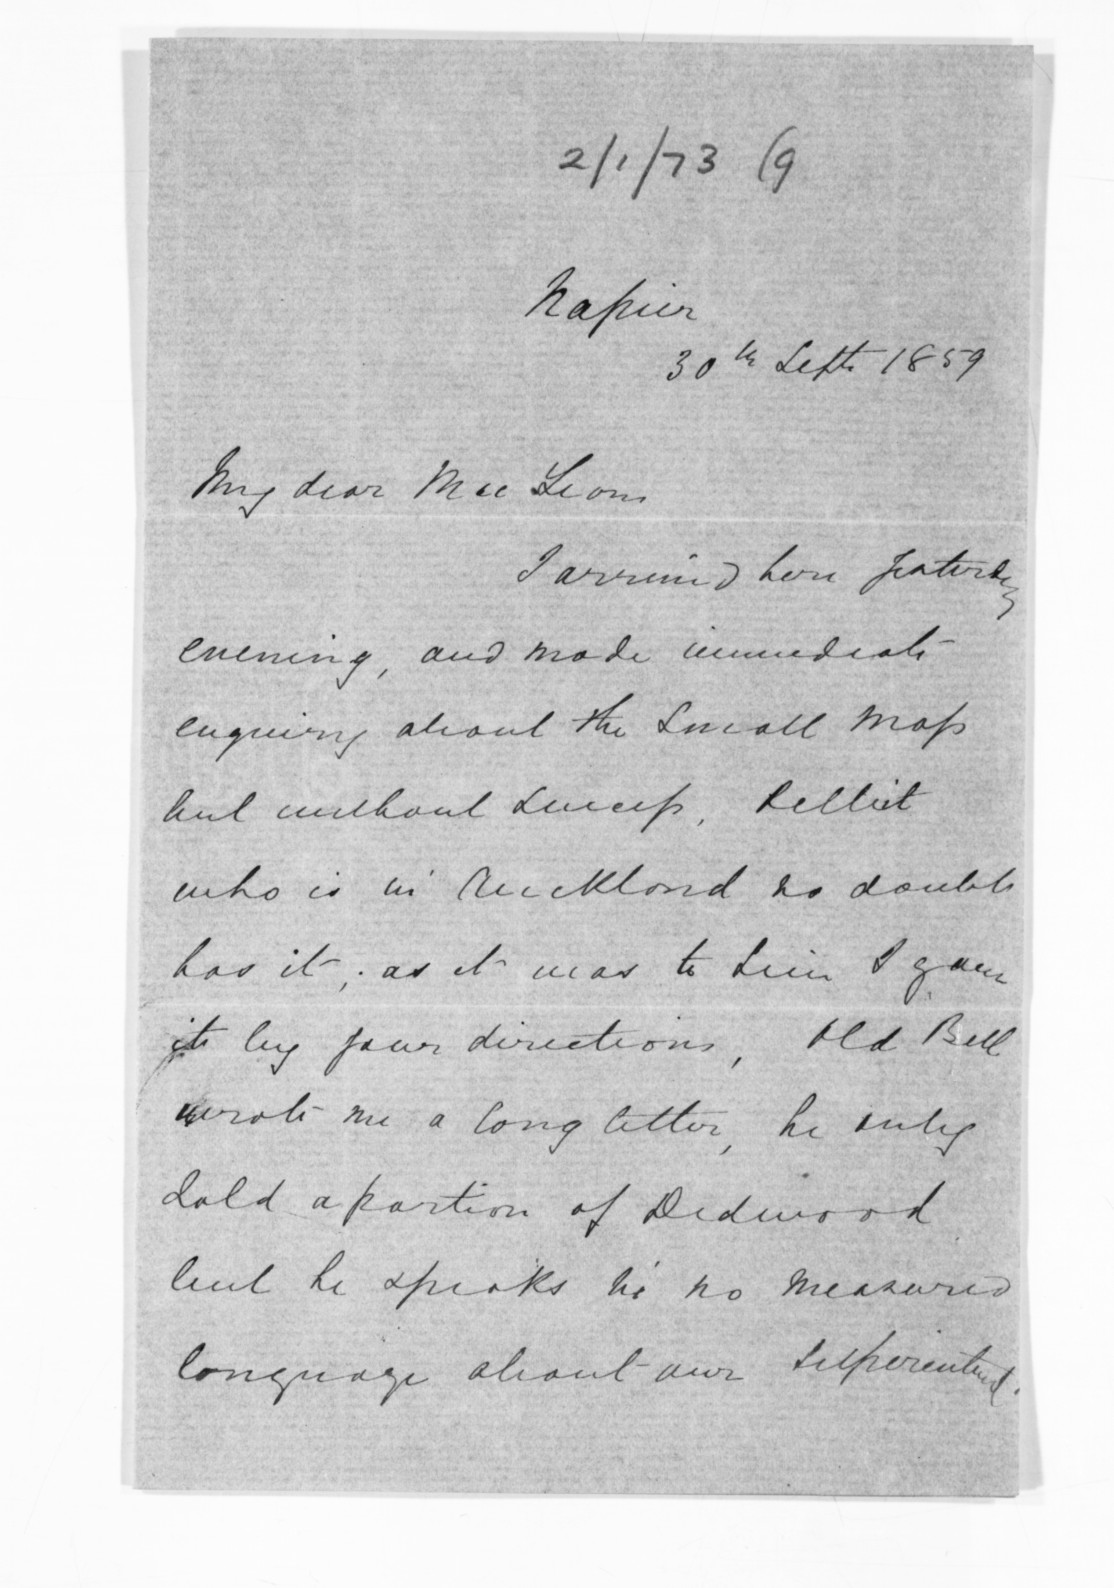 2/1/73 (9
Napier
30th Septr 1859
My dear Mac Lean
I arrived here yesterday
evening, and made immediate
enquiry about the small map
but without success,
who is in Auckland no doubt
has it, as it was to him I gave
it by your directions, Old Bell
wrote me a long letter, he only
sold a portion of
but he speaks in no measured
language about our Superintend.